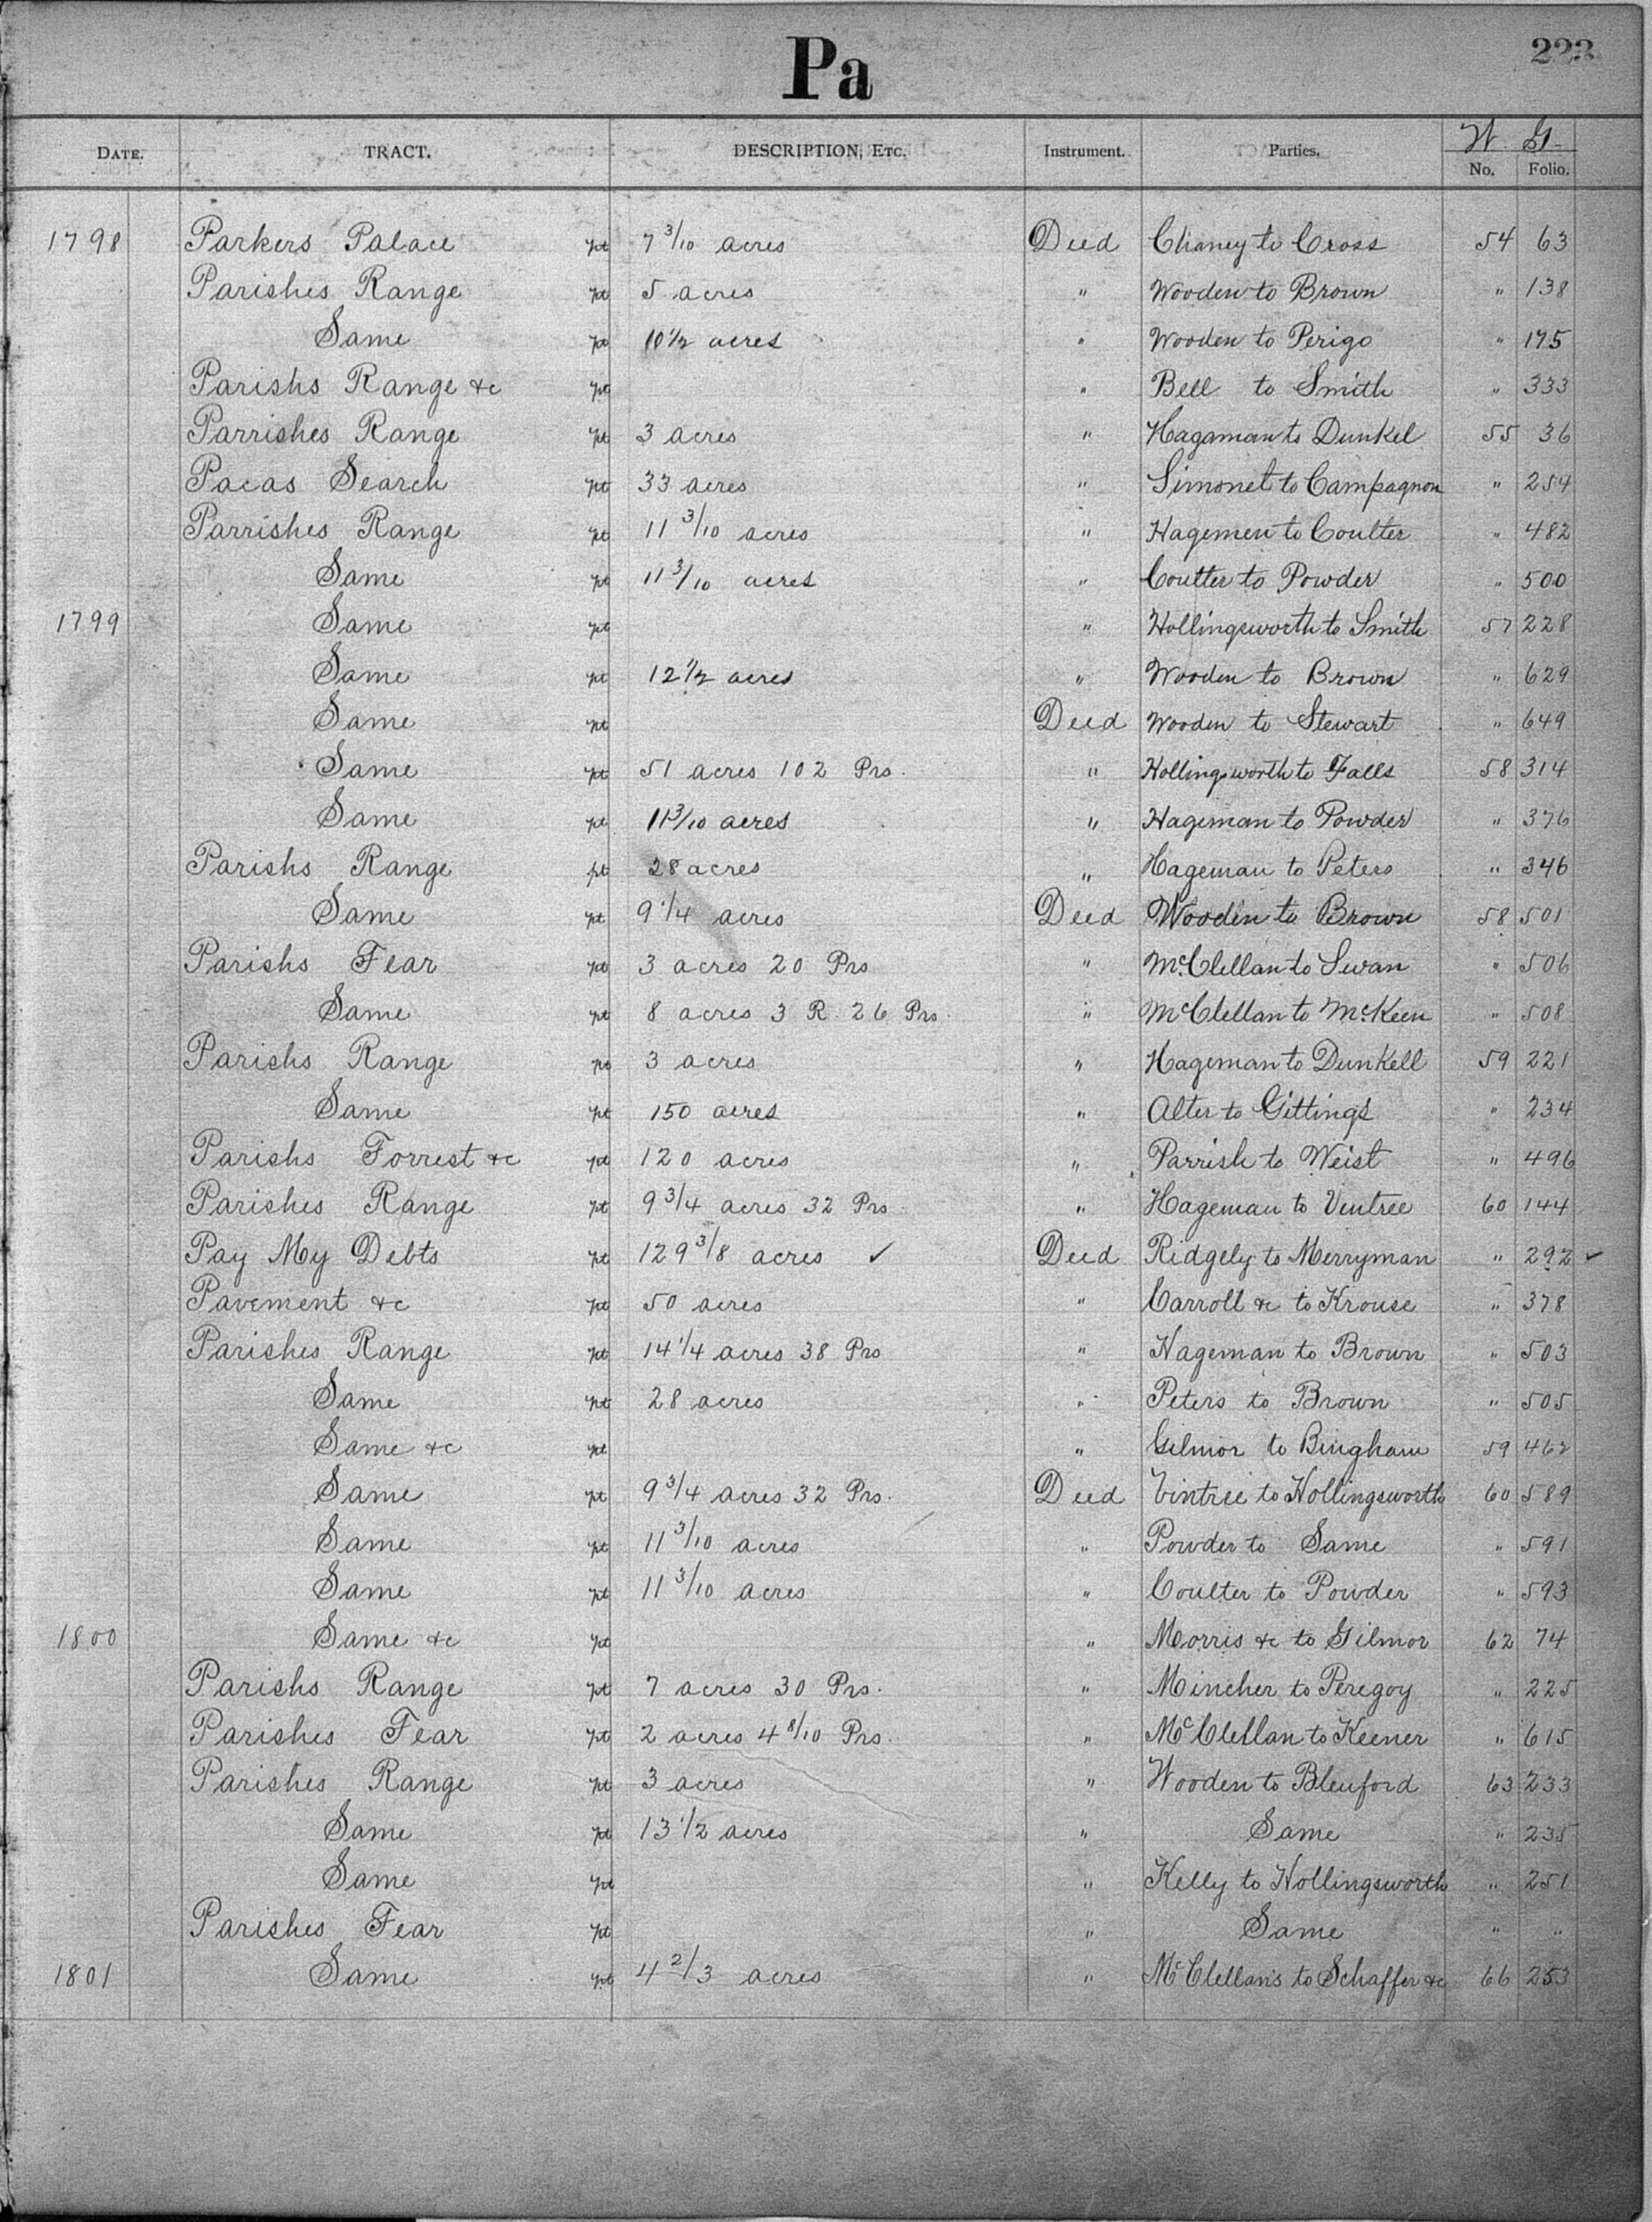 Pa
223
DATE. TRACT. DESCRIPTION, ETC. Instrument. Parties. W. G.
No. Folio.
1798 Parkers Palace pt 7 3/10 acres Deed Chaney to Cross 54 63
Parishes Range pt 5 acres " Wooden to Brown " 138
Same pt 10 1/2 acres " Wooden to Perigo " 175
Parishs Range &c pt " Bell to Smith " 333
Parrishes Range pt 3 acres " Hagaman to Dunkel 55 36
Pacas Search pt 33 acres " Simonet to Campagnon " 254
Parrishes Range pt 11 3/10 acres " Hagemen to Coulter " 482
Same pt 11 3/10 acres " Coulter to Powder " 500
1799 Same pt " Hollingsworth to Smith 57 228
Same pt 12 1/2 acres " Wooden to Brown " 629
Same pt Deed Wooden to Stewart " 649
Same pt 51 acres 102 Prs. " Hollingsworth to Falls 58 314
Same pt 11 3/10 acres " Hageman to Powder " 376
Parishs Range pt 28 acres " Hageman to Peters " 346
Same pt 9 1/4 acres Deed Wooden to Brown 58 501
Parishs Fear pt 3 acres 20 Prs " McClellan to Swan " 506
Same pt 8 acres 3 R. 26 Prs. " McClellan to McKeen " 508
Parishs Range pt 3 acres " Hageman to Dunkell 59 221
Same pt 150 acres " Alter to Gittings " 234
Parishs Forrest &c pt 120 acres " Parrish to Weist " 496
Parishes Range pt 9 3/4 acres 32 Prs " Hageman to Vintree 60 144
Pay My Debts pt 129 3/8 acres ✓ Deed Ridgely to Merryman " 292 ✓
Pavement &c pt 50 acres " Carroll &c to Krouse " 378
Parishes Range pt 14 1/4 acres 38 Prs " Hageman to Brown " 503
Same pt 28 acres " Peters to Brown " 505
Same &c pt " Gilmor to Bingham 59 462
Same pt 9 3/4 acres 32 Prs. Deed Vintree to Hollingsworth 60 589
Same pt 11 3/10 acres " Powder to Same " 591
Same pt 11 3/10 acres " Coulter to Powder " 593
1800 Same &c pt " Morris &c to Gilmor 62 74
Parishs Range pt 7 acres 30 Prs. " Mincher to Peregoy " 225
Parishes Fear pt 2 acres 4 8/10 Prs. " McClellan to Keener " 615
Parishes Range pt 3 acres " Wooden to Bleuford 63 233
Same pt 13 1/2 acres " Same " 235
Same pt " Kelly to Hollingsworth " 251
Parishes Fear pt " Same " "
1801 Same pt 4 2/3 acres " McClellans to Schaffer &c 66 253